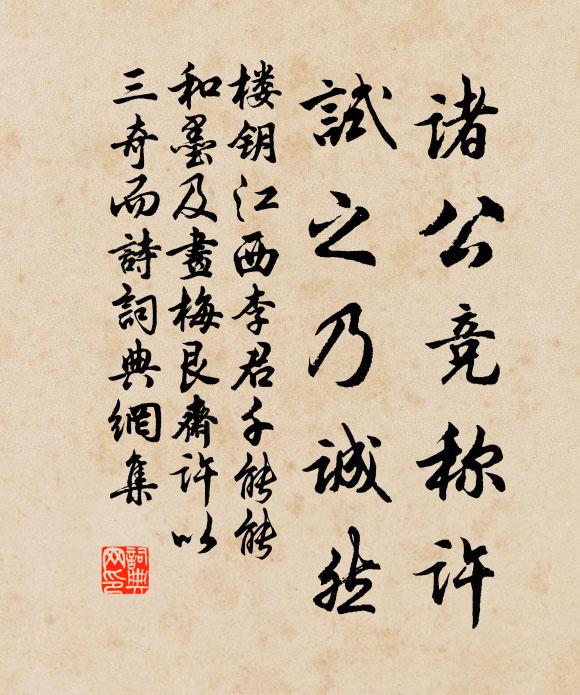 诸公竞称许
試之乃誠然
楼钥江西李君千能能
和墨及畫梅艮齋許以
三奇而詩詞典網集
詞典
网印